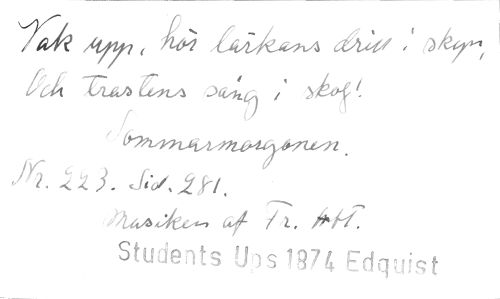 Vak upp, hör lärkans drill i skyn,
Och trastens sång i skog!
Sommarmorgonen.
Nr. 223. Sid. 281.
Musiken af Fr. Abt.
Students Ups 1874 Edquist